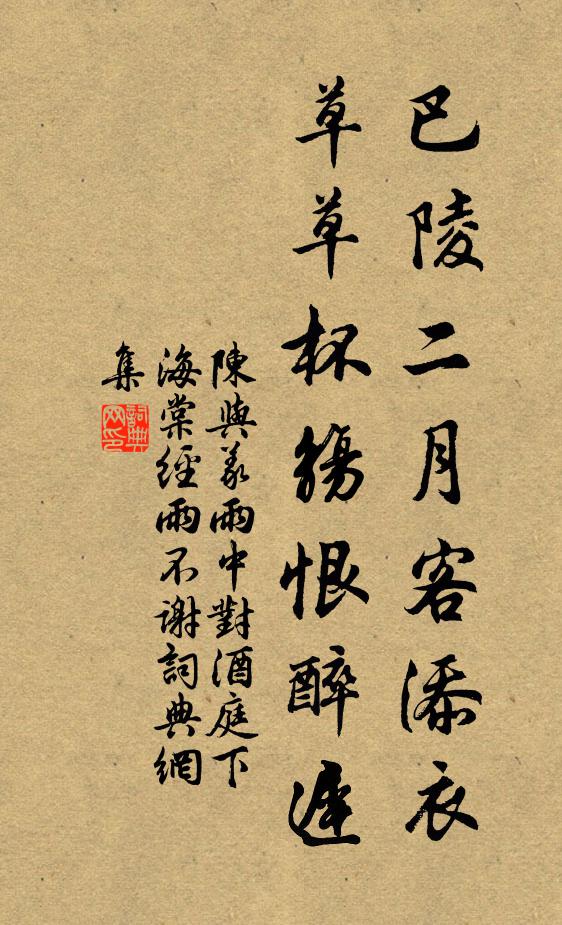 巴陵二月客添衣
草草杯觴恨醉遲
陳與義雨中對酒庭下
海棠經雨不謝詞典網
集
詞典
网印